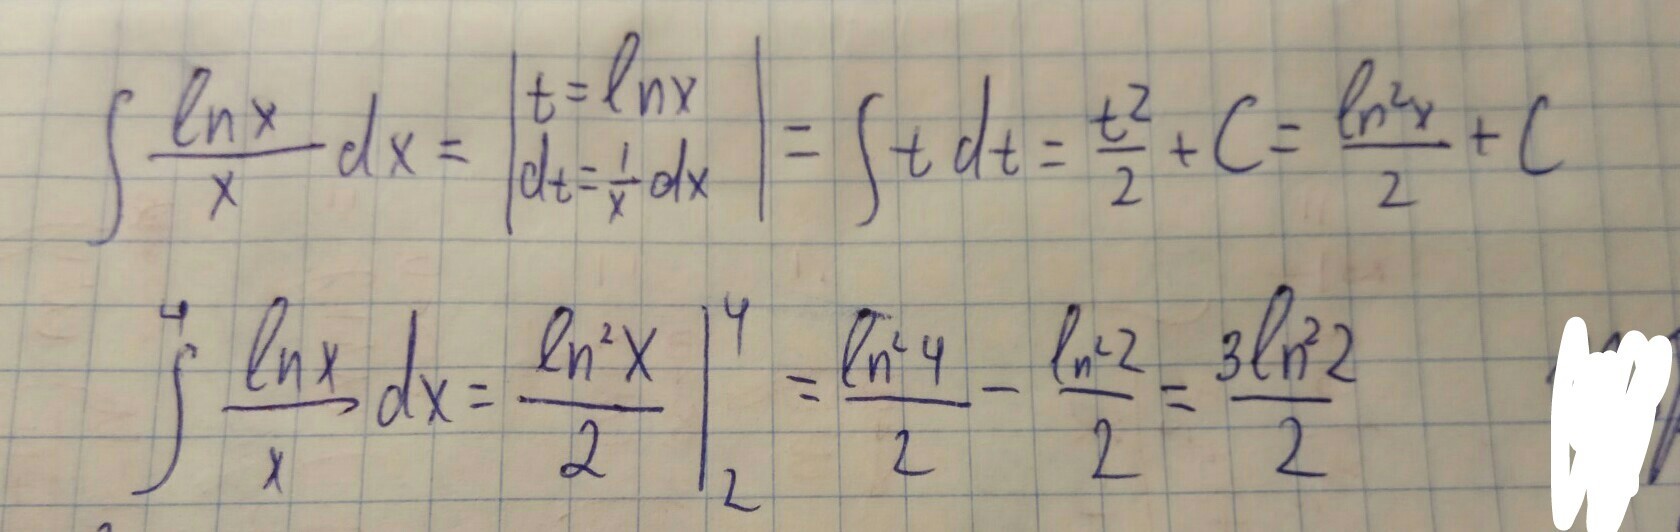 ∫ lnx/x dx = | t = lnx dt = 1/x dx | = ∫ t dt = t²/2 + C = ln²x/2 + C
∫⁴ lnx/x dx = ln²x/2 |₂⁴ = ln²4/2 − ln²2/2 = 3ln²2/2